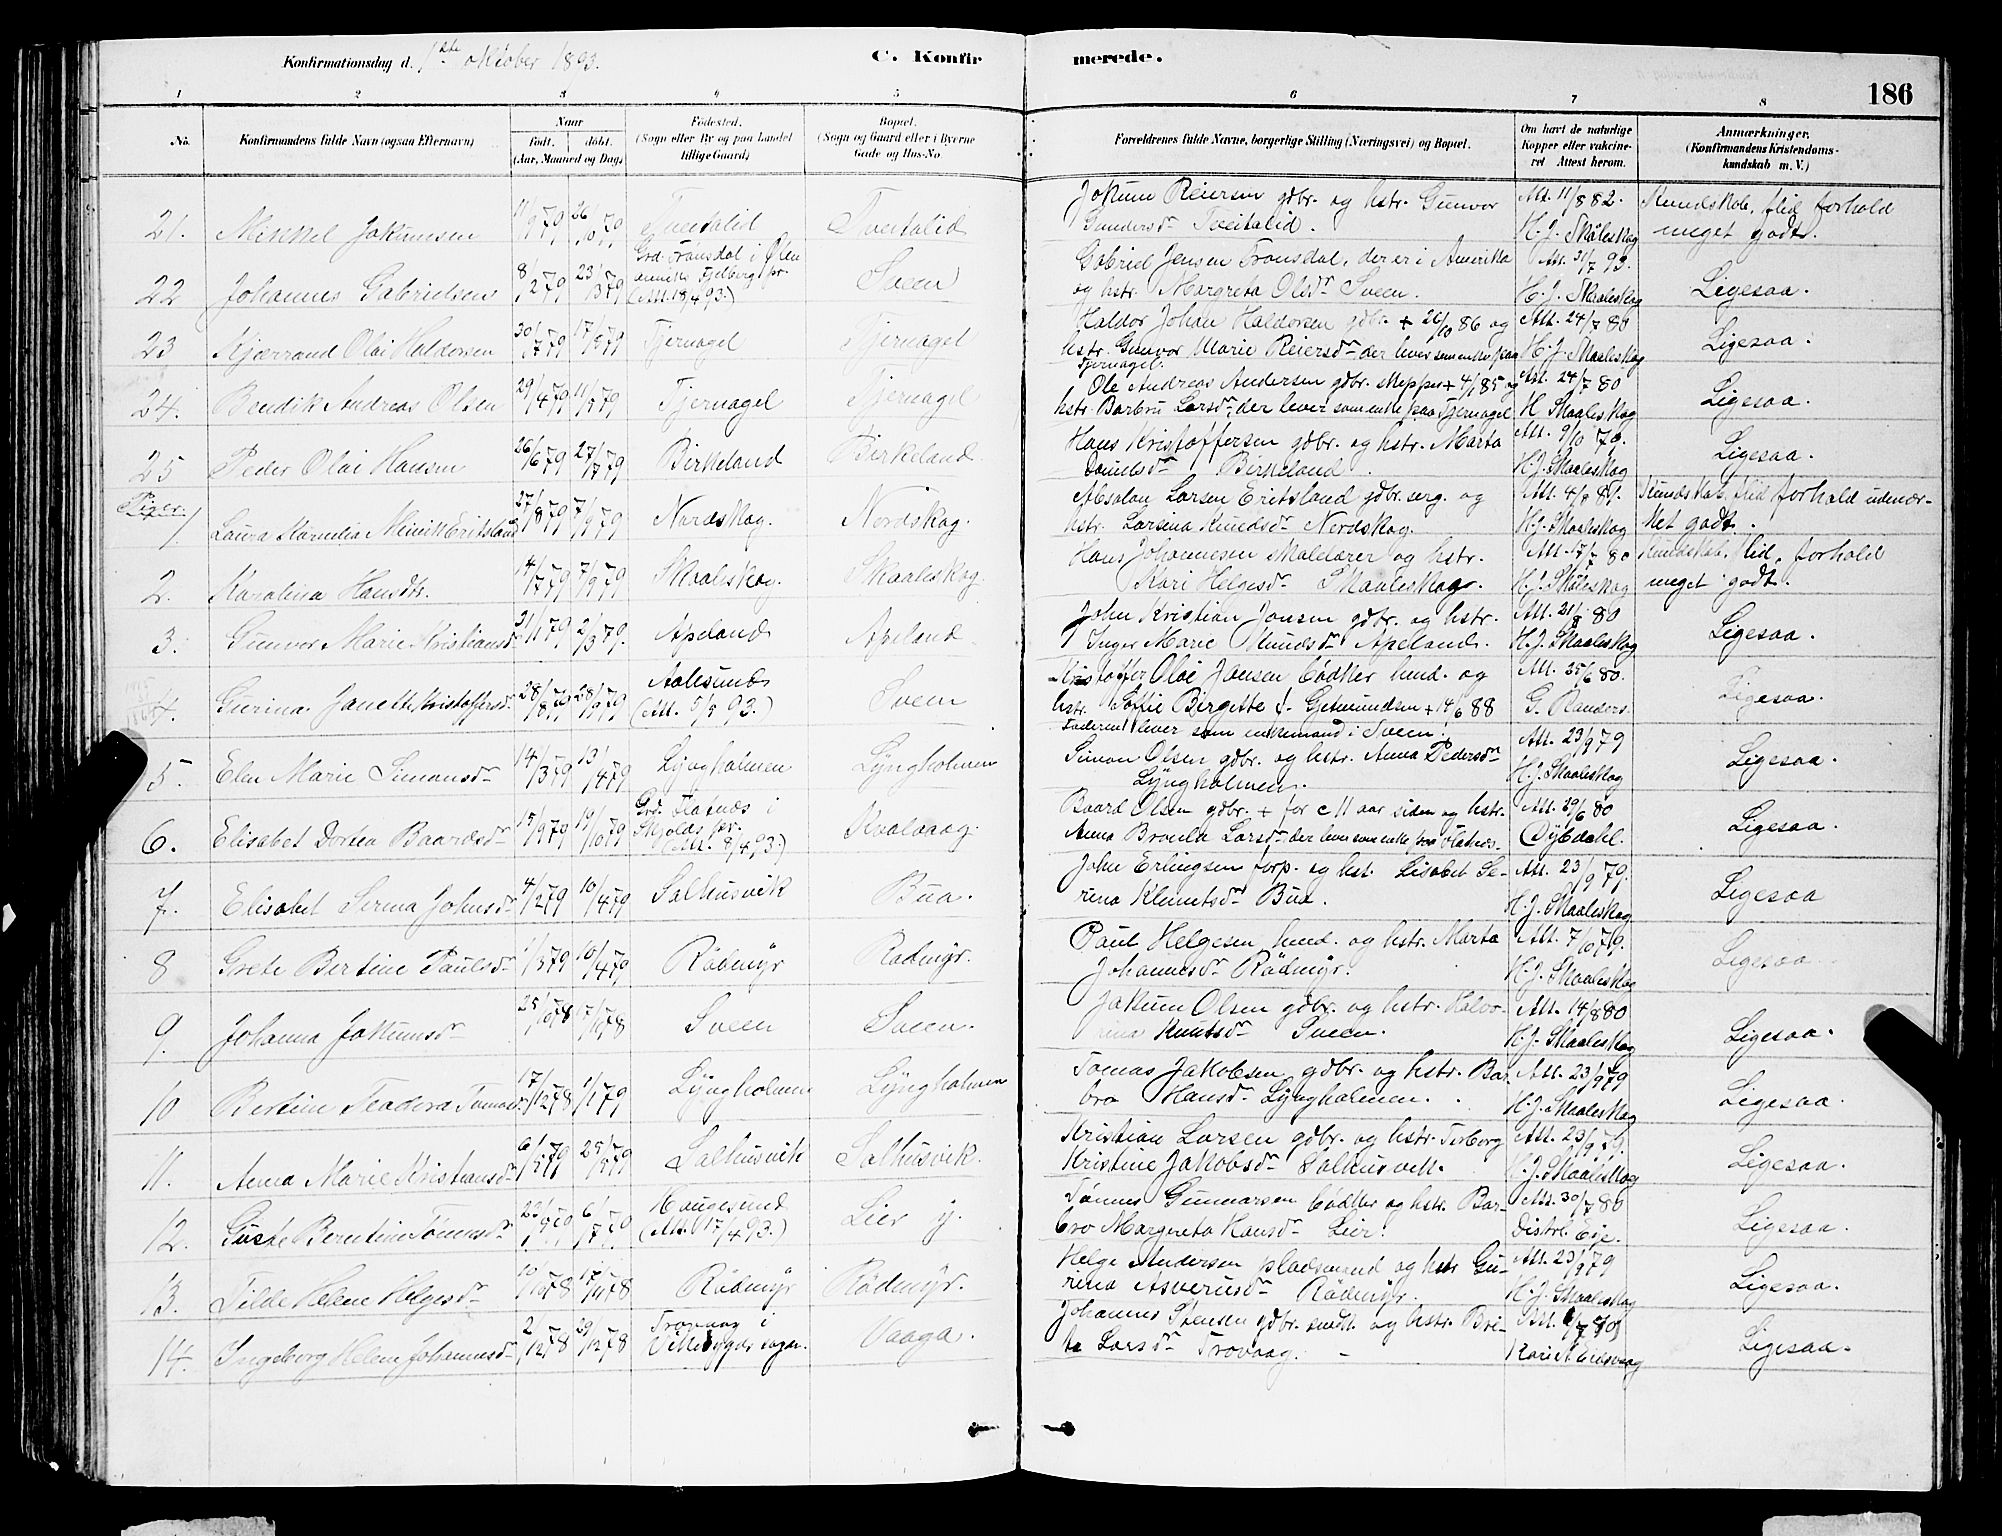 Konfirmationsdag d. 1ste oktober 1893.
C. Konfir
merede.
186
1 2 3 4 5 6 7 8
No.
Konfirmandens fulde Navn (ogsaa Efternavn)
Naar
født. døbt.
(Aar, Maaned og Dag)
Fødested.
(Sogn eller By og paa Landet
tillige Gaard)
Bopæl.
(Sogn og Gaard eller i Byerne
Gade og Hus-No
Forældrenes fulde Navne, borgerlige Stilling (Næringsvei) og Bopæl.
Om havt de naturlige
Kopper eller vakcine-
ret Attest herom.
Anmærkninger.
(Konfirmandens Kristendoms-
kundskab m. V.)
21. Mikkel Jokumsen 11/9 79 26/10 79 Tveitalid Tveitalid Jokum Reiersen gdbr. og hstr. Gunvor Att. 11/8 82. Kundskab, flid forhold
Gundersdr Tveitalid. H. J. Skåleskog meget godt.
22 Johannes Gabrielsen 8/2 79 23/3 79 Grd. Tronsdal i Ølen
anneks Fjelberg pr.
(Att. 18/4 93.) Sveen Gabriel Jensen Tronsdal, der er i Amerika Att. 31/7 93.
og hstr. Margreta Olsdr Sveen. H. J. Skaaleskog Ligesaa.
23 Kjærrand Olai Haldorsen 30/7 79 17/8 79 Tjernagel Tjernagel Haldor Johan Haldorsen gdbr. + 26/10 86 og Att. 24/7 80
hstr. Gunvor Marie Reiersdr der lever som enke paa H. J. Skaaleskog Ligesaa.
Tjernagel.
24. Bendik Andreas Olsen 29/4 79 11/5 79 Tjernagel Tjernagel Ole Andreas Andersen gdbr. skipper + 4/1 85 og Att. 24/7 80
hstr. Barbru Larsdr, der lever som enke paa Tjernagel H Skaaleskog Ligesaa.
25 Peder Olai Hansen 26/6 79 27/7 79 Birkeland Birkeland Hans Kristoffersen gdbr. og hstr. Marta Att. 9/10 79.
Danielsdr Birkeland. H. J. Skaaleskog Ligesaa.
Piger.
1 Laura Kornelia Minik Eritsland 27/8 79 7/9 79 Nordskog. Nordskog. Absalon Larsen Eritsland gdbr. serg. og Att. 4/8 81. Kundskab, flid forhold udmær-
hstr. Larsina Knudsdr Nordskog. H. J. Skaaleskog ket godt.
2. Karolina Hansdtr. 14/7 79 7/9 79 Skaaleskog. Skaaleskog. Hans Johannesen skolelærer og hstr. Att. 17/7 80 Kundskab, flid, forhold
Kari Helgesdr Skaaleskog. H. J. Skåleskog meget godt.
3. Gunvor Marie Kristiansdr 21/1 79 2/3 79. Apeland Apeland John Kristian Jonsen gdbr. og hstr. Att. 21/8 80
Inger Marie Knudsdr Apeland. H. J. Skaaleskog Ligesaa.
4. Gurina Janette Kristoffersdr. 28/8 79 28/9 79 Aalesund
(Att. 5/5 93.) Sveen Kristoffer Olai Jansen bødker hmd. og Att. 25/6 80.
hstr. Soffie Birgitte f. Gjetmundsen + 14/6 88 G. Randers. Ligesaa.
Faderen lever som enkemand i Sveen.
5. Elen Marie Simonsdr 14/3 79 13/4 79 Lyngholmen Lyngholmen Simon Olsen gdbr. og hstr. Anna Pedersdr Att. 23/9 79
Lyngholmen. H. J. Skaaleskog Ligesaa.
6. Elisabet Dortea Baardsdr 15/9 79 19/10 79 Grd. Flatnæs i
Skjolds pr.
(Att. 8/4 93.) Kvalvaag. Baard Olsen gdbr. + for c 11 aar siden og hstr. Att. 29/6 80
Anna Bronla Larsdr der lever som enke paa Flatnæs. Dybdahl. Ligesaa.
7. Elisabet Serina Johnsdr 4/2 79 10/4 79 Salhusvik Bua. John Erlingsen forp. og hst. Lisabet Se- Att. 23/9 79.
rina Klemetsdr Bua. H. J. Skaaleskog. Ligesaa
8 Grete Bertine Paulsdr 1/3 79 10/4 79 Rødmyr Rødmyr. Paul Helgesen hmd. og hstr. Marta Att. 7/10 79.
Johannesdr Rødmyr. H. J. Skaaleskog Ligesaa
9. Johanna Jokumsdr 25/10 78 17/11 78 Sveen Sveen. Jokum Olsen gdbr. og hstr. Halvo- Att. 14/8 80
rina Knutsdr Sveen. H. J. Skaaleskog Ligesaa.
10 Bertine Teadora Tomasdr. 17/12 78 1/1 79 Lyngholmen Lyngholmen Tomas Jakobsen gdbr. og hstr. Bar- Att. 23/9 79
bro Hansdr Lyngholmen. H. J. Skaaleskog Ligesaa.
11. Anna Marie Kristiansdr 6/5 79 25/5 79 Salhusvik Salhusvik. Kristian Larsen gdbr. og hstr. Torborg Att. 23/9 79.
Kristine Jakobsdr Salhusvik. H. J. Skaaleskog Ligesaa.
12. Guste Berntine Tønnesdr 22/5 79 6/7 79 Haugesund
(Att. 17/4 93.) Lier y. Tønnes Gunnarsen bødker og hstr. Bar- Att. 30/7 80
bro Margreta Hansdr Lier. Distrl. Eie. Ligesaa.
13. Tilde Helene Helgesdr 10/10 78 17/11 78 Rødmyr Rødmyr. Helge Andersen pladsmand og hstr Gu- Att. 23/9 79
rina Asverusdr Rødmyr. H. J. Skaaleskog Ligesaa.
14. Ingeborg Helene Johannesdr 2/12 78 29/12 78 Trovaag i
Vikebygds sogn. Vaaga. Johannes Stensen gdbr. smdt. og hstr. Bri- Att. 7/80
ta Larsdr Trovaag. Ligesaa.